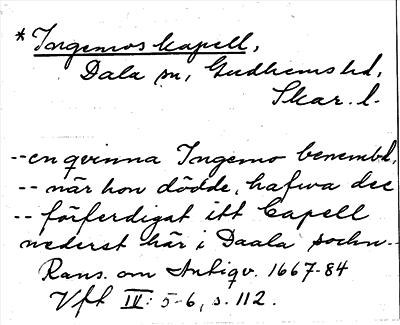 *Ingemos kapell,
Dala sn, Gudhems hd,
Skar. l.
--en qvinna Ingemo benembd,
-- när hon dödde, hafwa dee
-- förferdigat itt Capell
nederst här i Daala sochn--
Rans. om Antiqv. 1667-84
Vft IV: 5-6, s. 112.